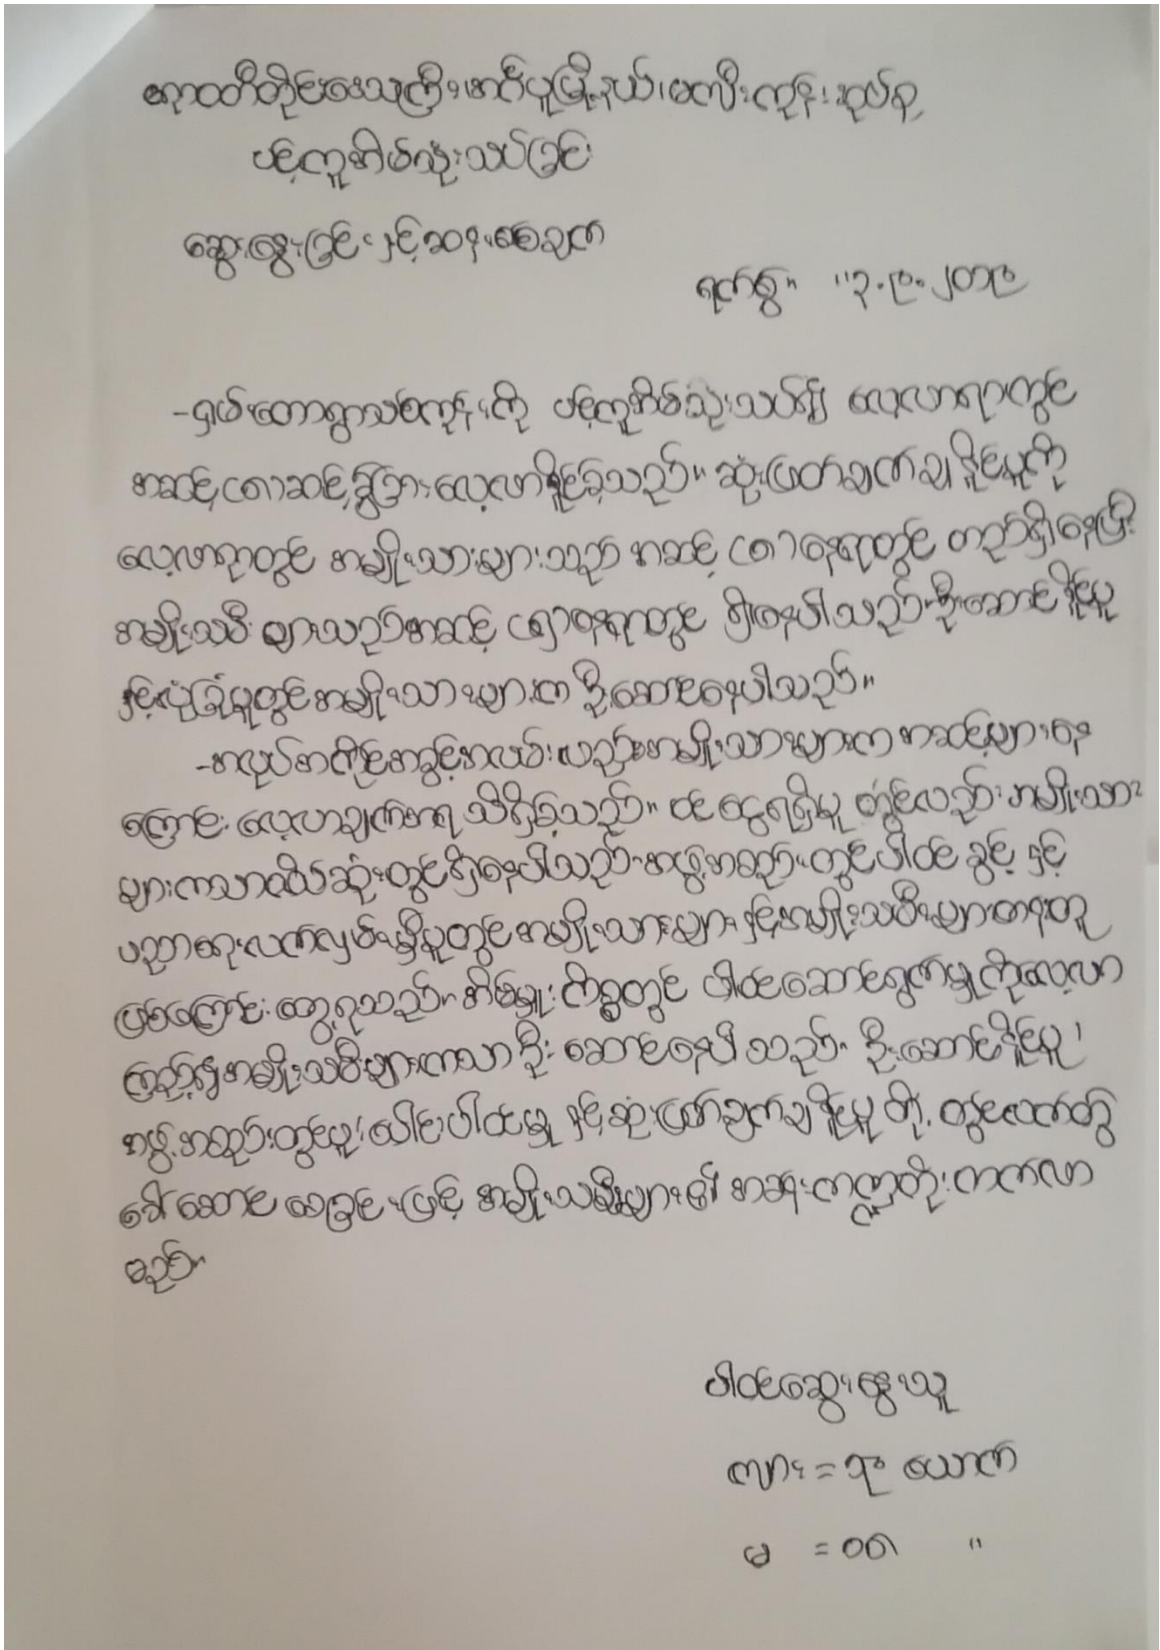 ဧရာဝတီတိုင်းဒေသကြီး၊ အင်္ဂပူမြို့နယ်၊ မလီးကုန်းအုပ်စု
ပင့်ကူအိမ်သုံးသပ်ခြင်း
ဆွေးနွေးခြင်းနှင့်ဆန်းစစ်ချက်
ရက်စွဲ။ ။၃.၉.၂၀၁၉
-ရှမ်းတောရွာသစ်ကုန်းကို ပင့်ကူအိမ်သုံးသပ်၍ လေ့လာရာတွင်
အဆင့် ၁၀ ဆင့်ခွဲခြားလေ့လာနိုင်ခဲ့သည်။ ဆုံးဖြတ်ချက်ချနိုင်မှုကို
လေ့လာရာတွင် အမျိုးသားများသည် အဆင့် နေရာတွင် တည်ရှိနေပြီး
အမျိုးသမီးများသည်အဆင့် နေရာတွင် ရှိနေပါသည်။ ဦးဆောင်နိုင်မှု
နှင့်လုံခြုံမှုတွင်အမျိုးသားများက ဦးဆောင်နေပါသည်။
-အလုပ်အကိုင်အခွင့်အလမ်းလည်းအမျိုးသားများက အဆင့်များနေ
ကြောင်း လေ့လာချက်အရ သိရှိခဲ့သည်။ ဝင်ငွေရရှိမှု တွင်လည်း အမျိုးသား
များကသာထိပ်ဆုံးတွင်ရှိနေပါသည်။ အဖွဲ့အစည်းတွင်ပါဝင်ခွင့် နှင့်
ပညာရေးလက်လှမ်းမှီမှုတွင်အမျိုးသားများနှင့်အမျိုးသမီးများတန်းတူ
ဖြစ်ကြောင်း တွေ့ရသည်။ အိမ်မှုကိစ္စတွင် ပါဝင်ဆောင်ရွက်မှုကိုလေ့လာ
ကြည့်၍အမျိုးသမီးများကသာဦး ဆောင်နေပါသည်။ ဦးဆောင်နိုင်မှု၊
အဖွဲ့အစည်းတွင်မှု၊ ပေါင်းပါဝင်မှု နှင့်ဆုံးဖြတ်ချက်ချနိုင်မှု တို့ တွင်လက်တွဲ
ခေါ်ဆောင် စေခြင်းဖြင့် အမျိုးသမီးများ၏ အခန်းကဏ္ဍတိုးတက်လာ
မည်။
ပါဝင်ဆွေးနွေးသူ
ကျား = ယောက်
မ = "